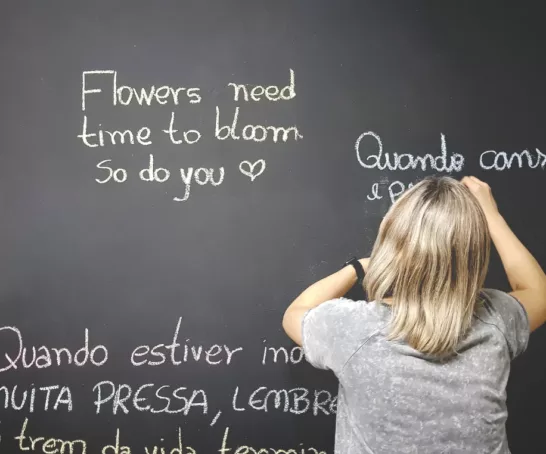 Flowers need
time to bloom
So do you ♡
Quando
e
Quando estiver
MUITA PRESSA, LEMBRE
trem da vida